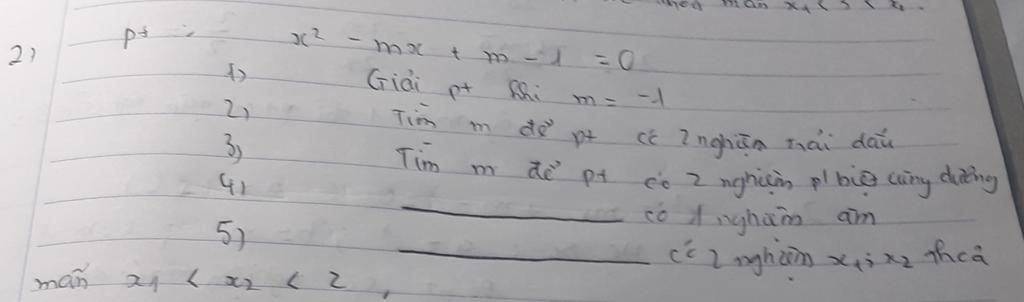 mãn x₁ < 3 < x₂.
2) pt : x² - mx + m - 1 = 0
1) Giải pt khi m = -1
2) Tìm m để pt có 2 nghiệm trái dấu
3) Tìm m để pt có 2 nghiệm p/biệt cùng dương
4) ________ có 1 nghiệm âm
5) ________ có 2 nghiệm x₁; x₂ thỏa
mãn x₁ < x₂ < 2